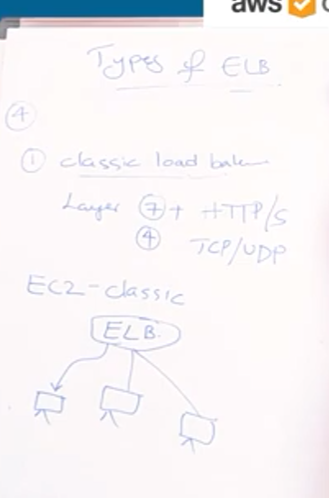 aws
Types of ELB
4
1 classic load
Layer 7 + HTTP/S
4 TCP/UDP
EC2-classic
ELB